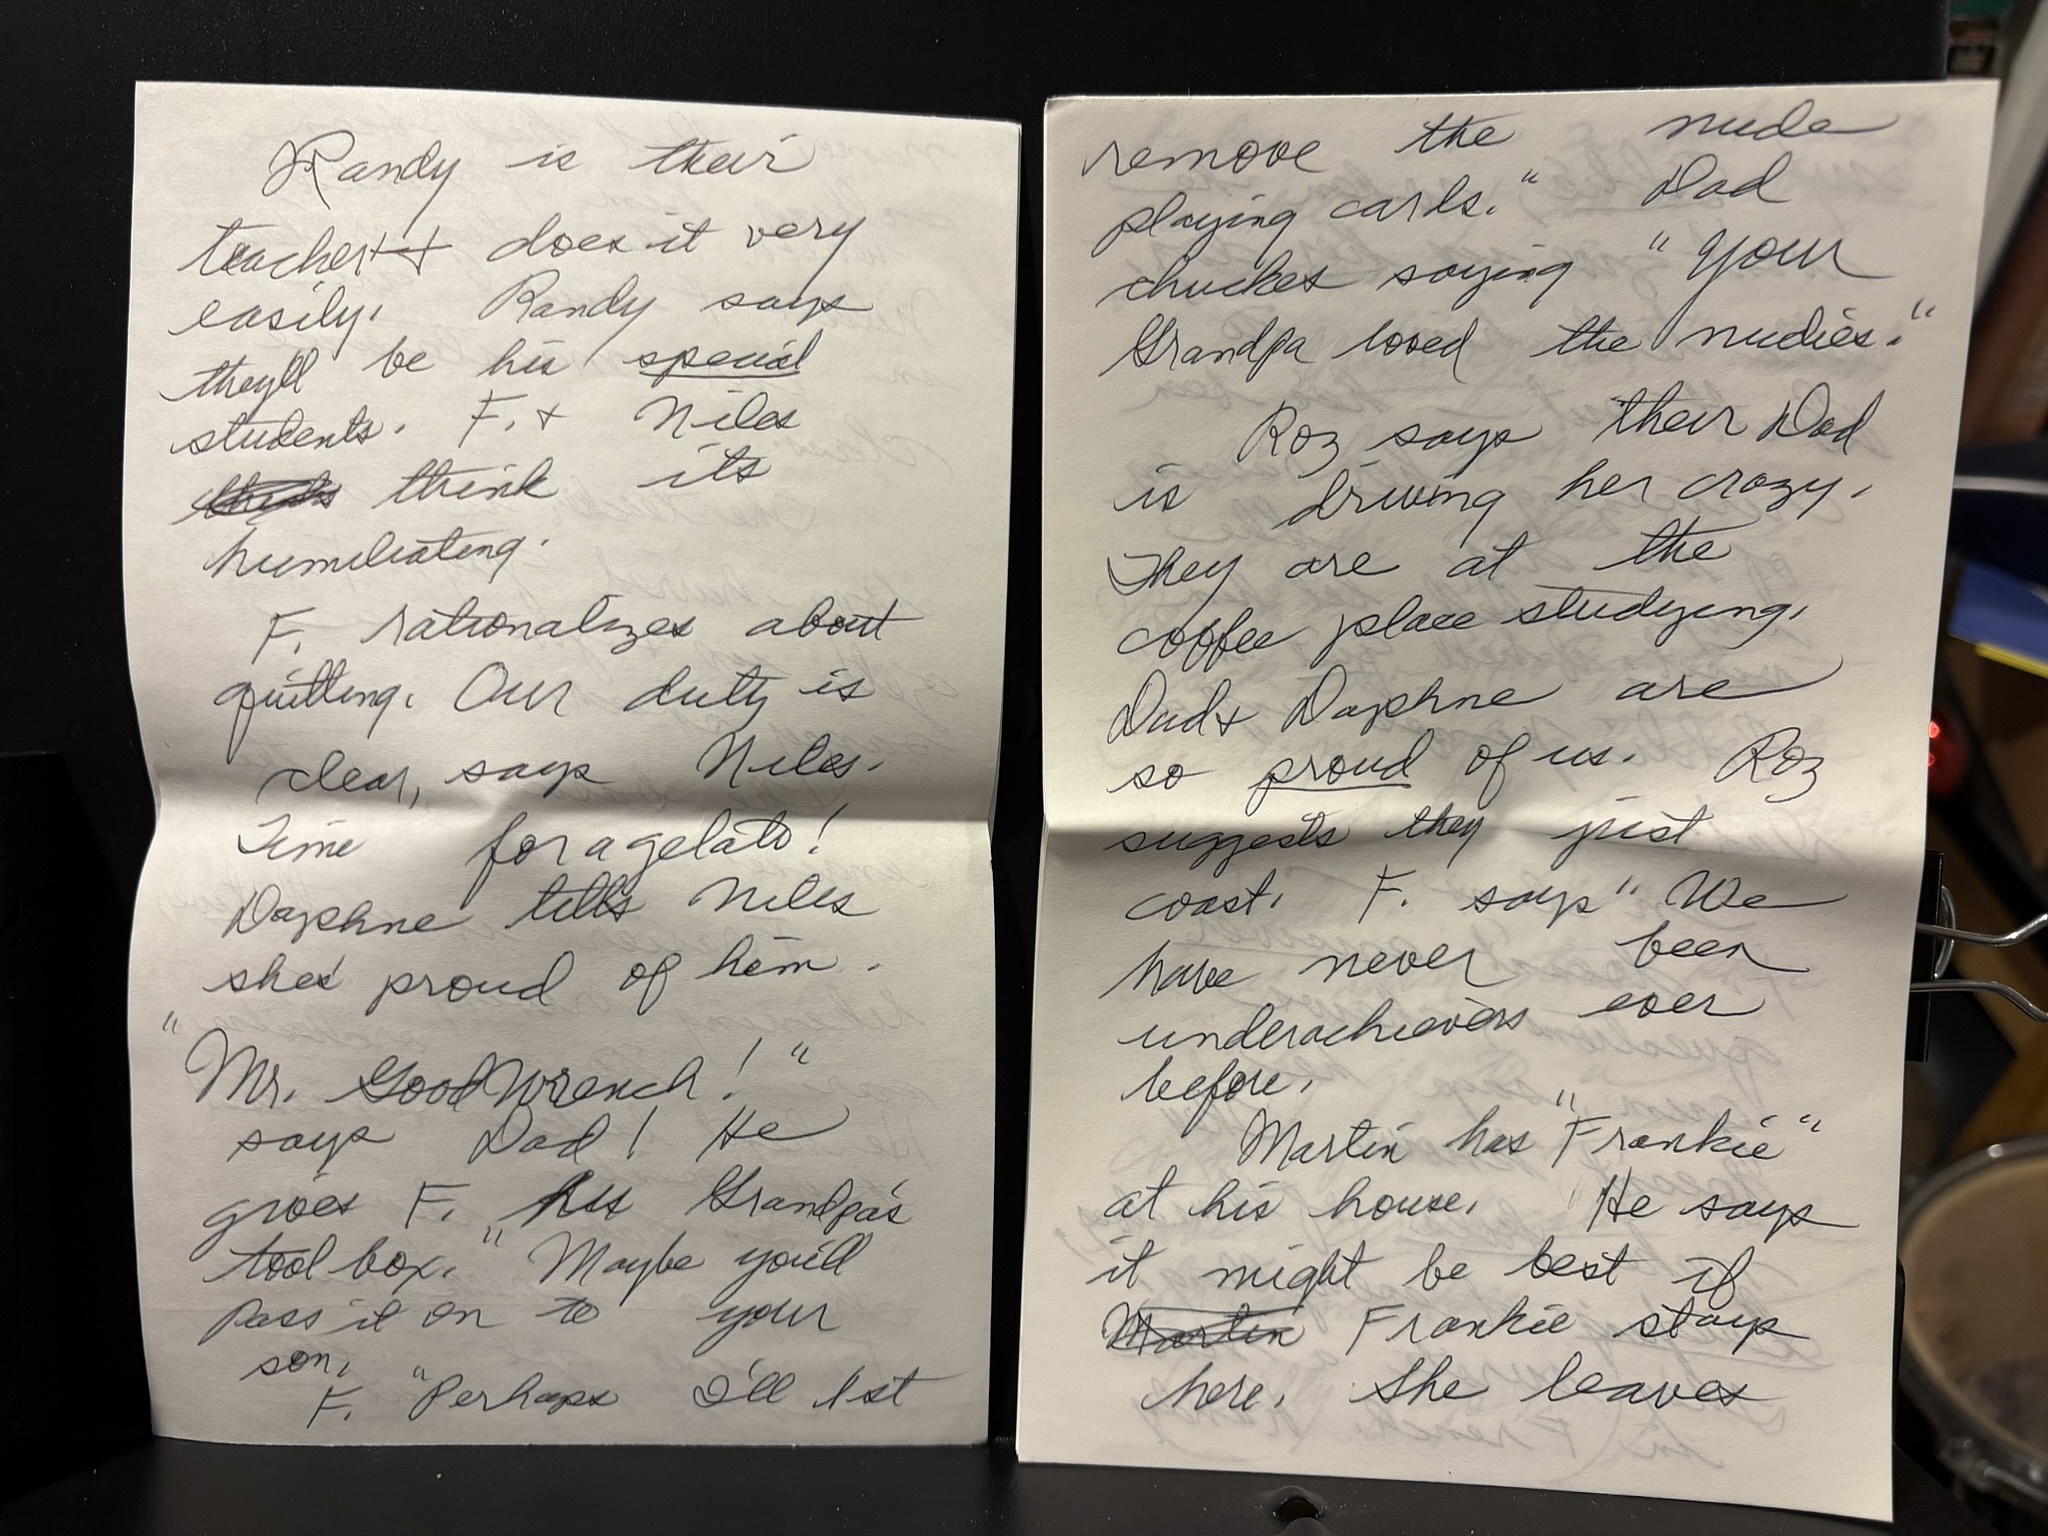 Randy is their
teacher + does it very
easily. Randy says
they'll be his special
students. F. + Niles
think its
humiliating.
F. rationalizes about
quitting. Our duty is
clear, says Niles.
Time for a gelato!
Daphne tells Niles
she's proud of him.
"Mr. GoodWrench!"
says Dad! He
gives F. his Grandpa's
tool box. "Maybe you'll
Pass it on to your
son.
F. "Perhaps I'll 1st
remove the nude
playing cards." Dad
chuckes saying "Your
Grandpa loved the nudies."
Roz says their Dad
is driving her crazy.
They are at the
coffee place studying.
Dad + Daphne are
so proud of us. Roz
suggests they just
coast. F. says "We
have never been
underachievers ever
before.
Martin has "Frankie"
at his house. He says
it might be best if
Martin Frankie stays
here. She leaves